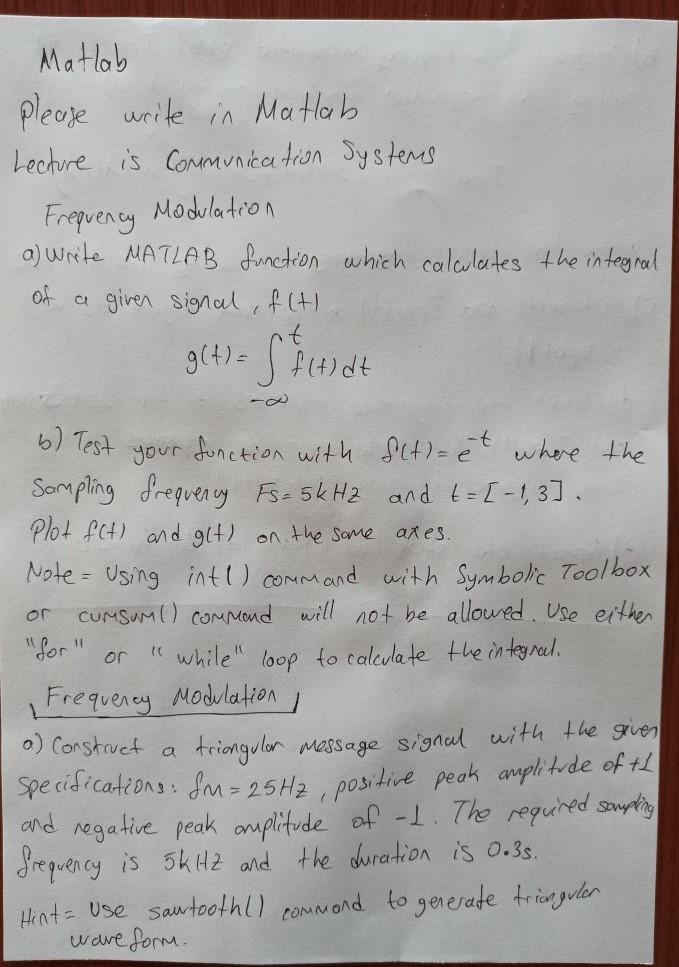 Matlab
Please write in Matlab
Lecture is Communication Systems
Frequency Modulation
a) Write MATLAB function which calculates the integral
of a given signal, f(t)
g(t) = ∫_{-∞}^{t} f(t) dt
b) Test your function with f(t) = e^{-t} where the
Sampling frequency Fs = 5kHz and t = [-1,3].
Plot f(t) and g(t) on the same axes.
Note = Using int() command with Symbolic Toolbox
or cumsum() command will not be allowed. Use either
"for" or "while" loop to calculate the integral.
Frequency Modulation
a) Construct a triangular message signal with the given
specifications: fm = 25Hz, positive peak amplitude of +1
and negative peak amplitude of -1. The required sampling
frequency is 5kHz and the duration is 0.3s.
Hint = Use sawtooth() command to generate triangular
waveform.